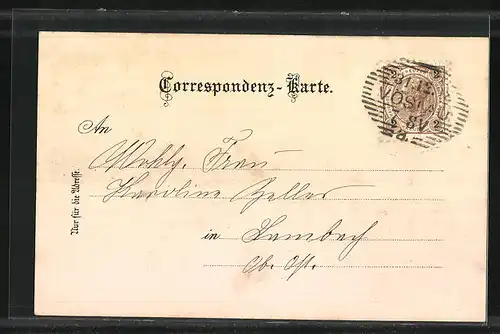 Correspondenz-Karte.
An
Wohlg. Frau
Karoline Zeller
in Lambach
Ob. Öst.
Nur für die Adresse.